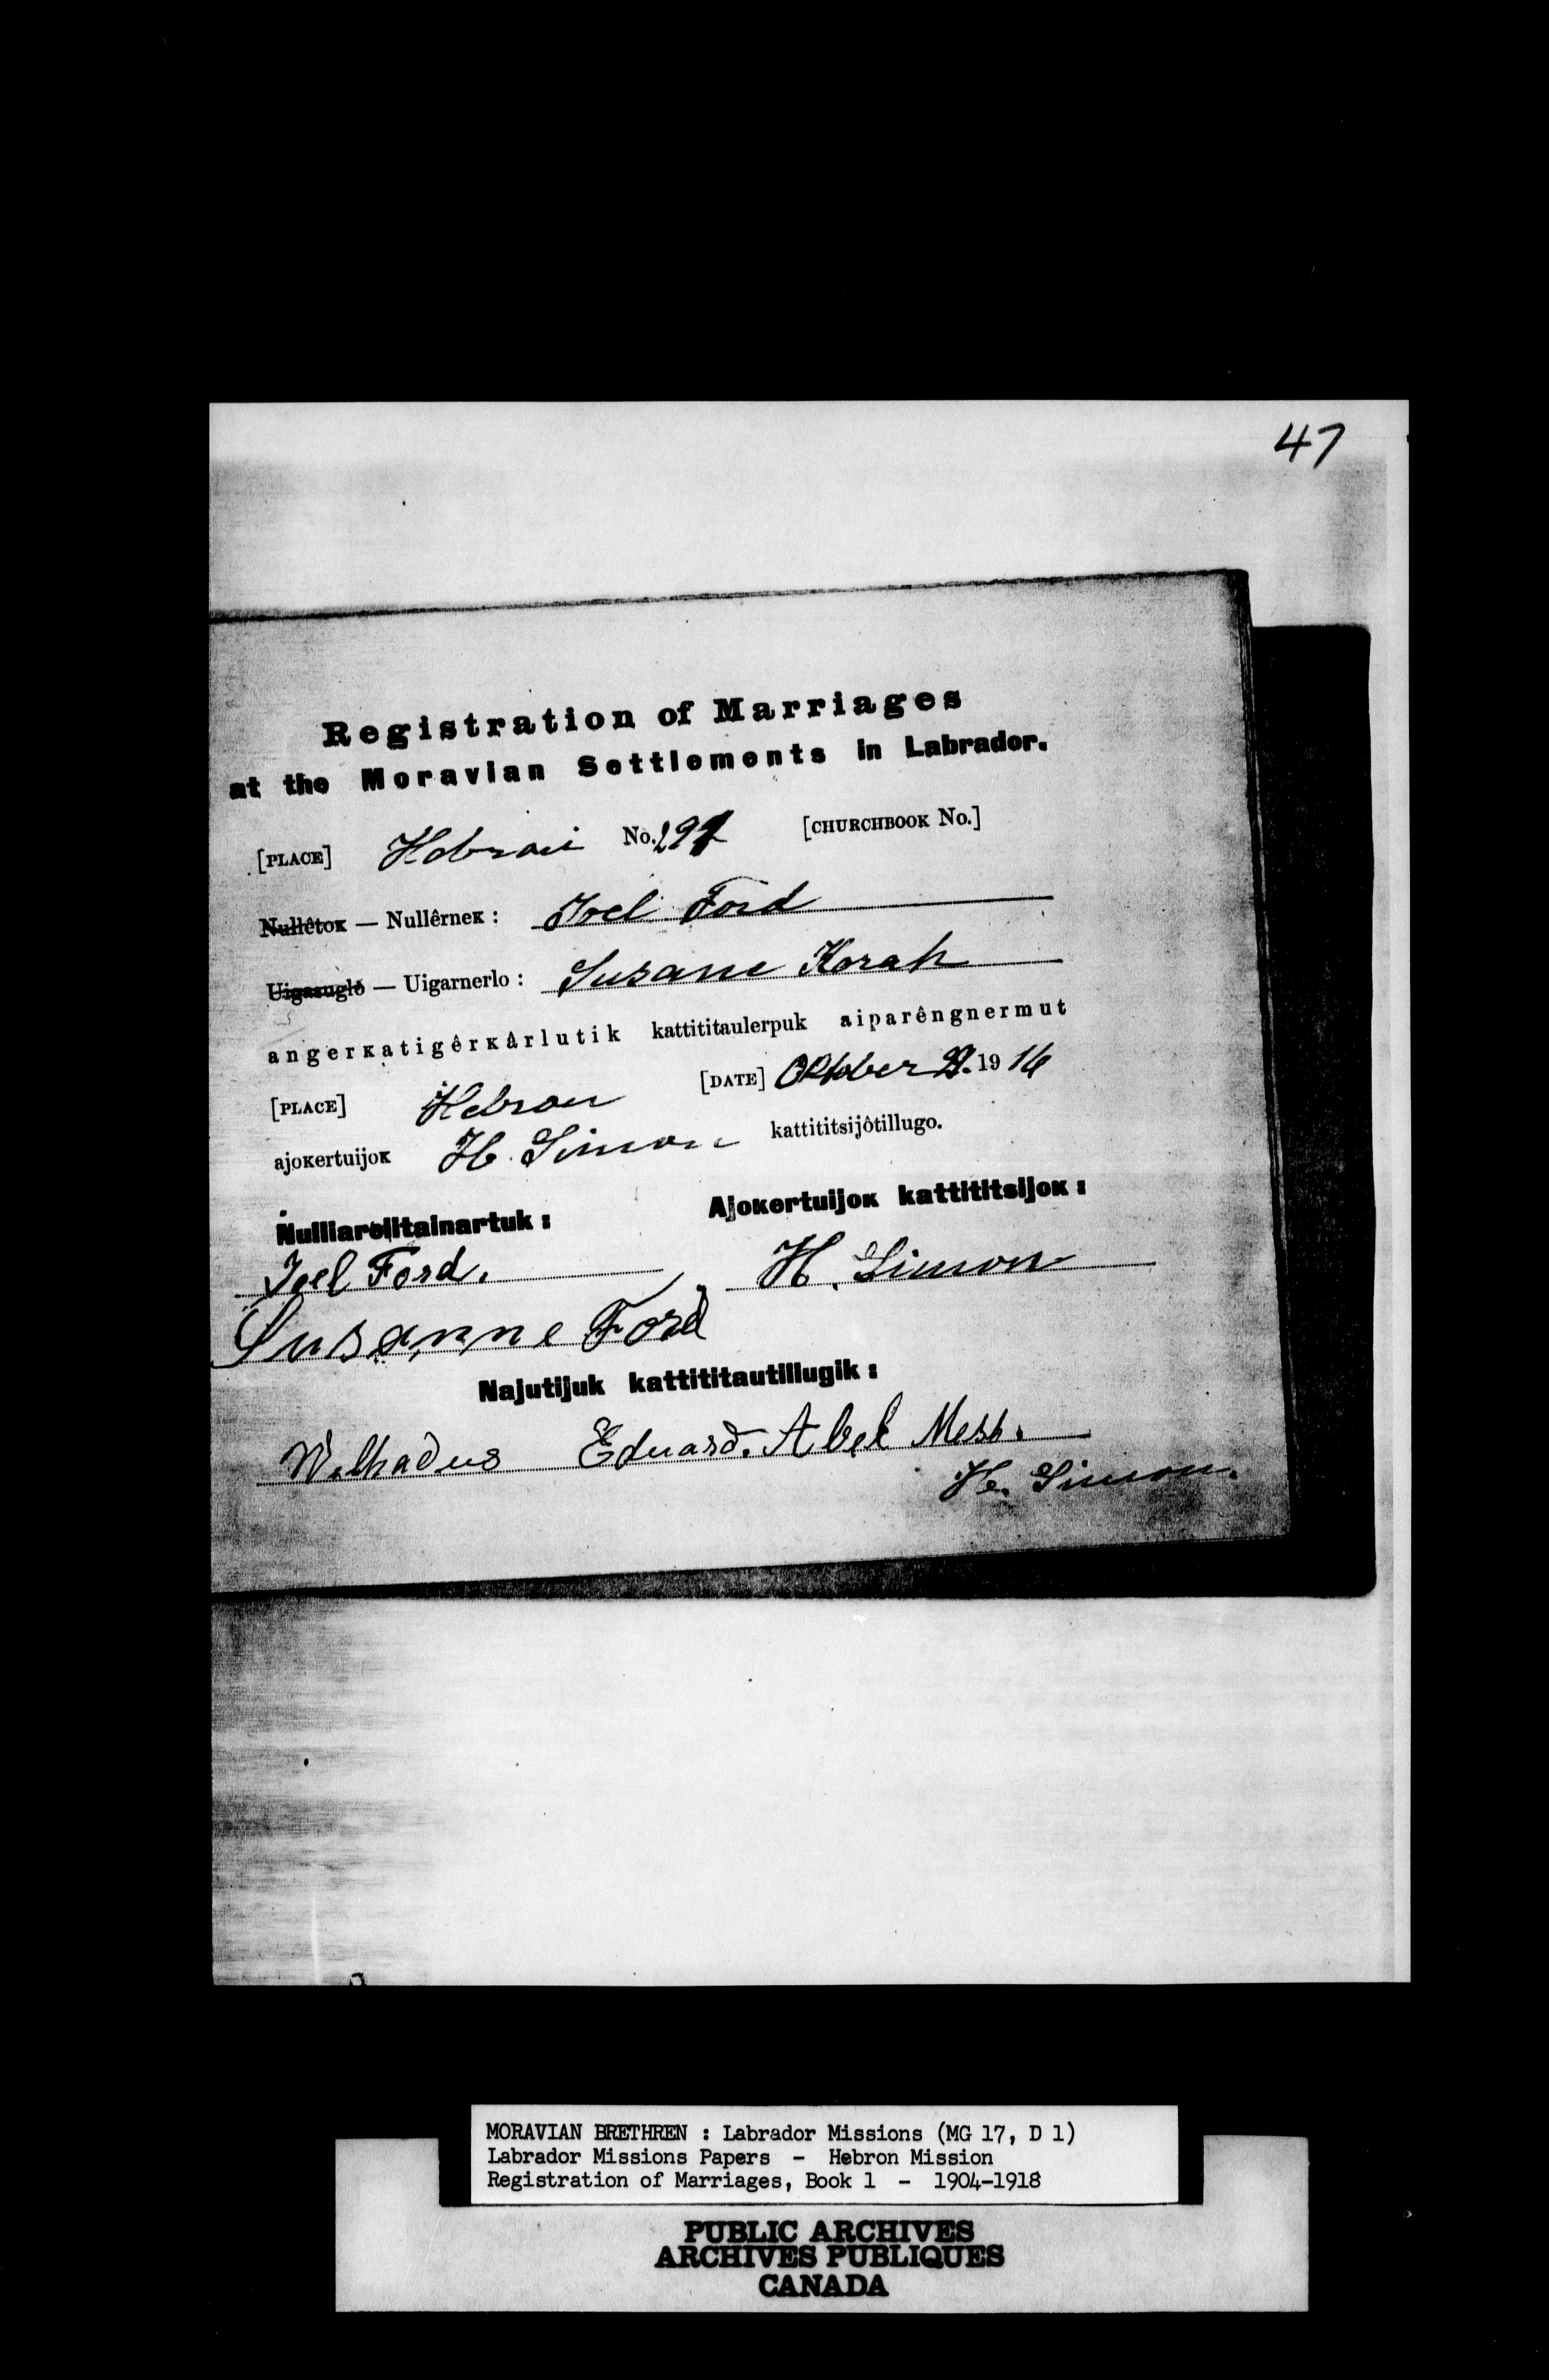 47
Registration of Marriages
at the Moravian Settlements in Labrador.
[PLACE] Hebron No. 29 [CHURCHBOOK No.]
Nullêtoĸ — Nullêrneĸ : Joel Ford
Uigasuglo — Uigarnerlo : Susane Korah
angerĸatigêrĸârlutik kattititaulerpuk aiparêngnermut
[PLACE] Hebron [DATE] Oktober 19 16
ajoĸertuijoĸ H. Simon kattititsijôtillugo.
Nulliarêlitainartuk : Ajoĸertuijoĸ kattititsijoĸ :
Joel Ford. H. Simon
Susanne Ford
Najutijuk kattititautillugik :
Wilhadus Eduard. Abel Mess.
H. Simon.
MORAVIAN BRETHREN : Labrador Missions (MG 17, D 1)
Labrador Missions Papers - Hebron Mission
Registration of Marriages, Book 1 - 1904-1918
PUBLIC ARCHIVES
ARCHIVES PUBLIQUES
CANADA